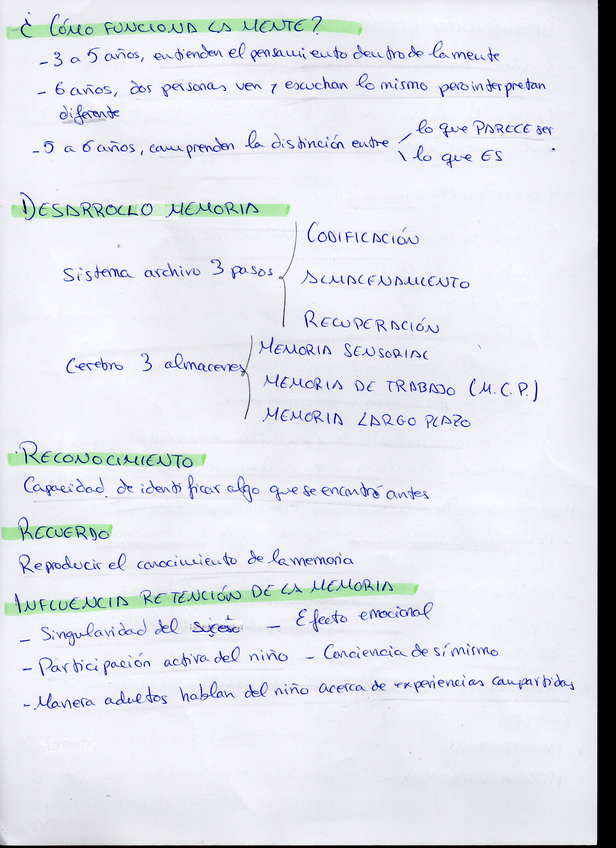 ¿ CÓMO FUNCIONA LA MENTE?
- 3 a 5 años, entienden el pensamiento dentro de la mente
- 6 años, dos personas ven y escuchan lo mismo pero interpretan
diferente
- 5 a 6 años, comprenden la distinción entre
lo que PARECE ser
lo que ES
DESARROLLO MEMORIA
Sistema archivo 3 pasos
CODIFICACIÓN
ALMACENAMIENTO
RECUPERACIÓN
Cerebro 3 almacenes
MEMORIA SENSORIAL
MEMORIA DE TRABAJO (M.C.P.)
MEMORIA LARGO PLAZO
RECONOCIMIENTO
Capacidad de identificar algo que se encontró antes
RECUERDO
Reproducir el conocimiento de la memoria
INFLUENCIA RETENCIÓN DE LA MEMORIA
- Singularidad del suceso - Efecto emocional
- Participación activa del niño - Conciencia de sí mismo
- Manera adultos hablan del niño acerca de experiencias compartidas